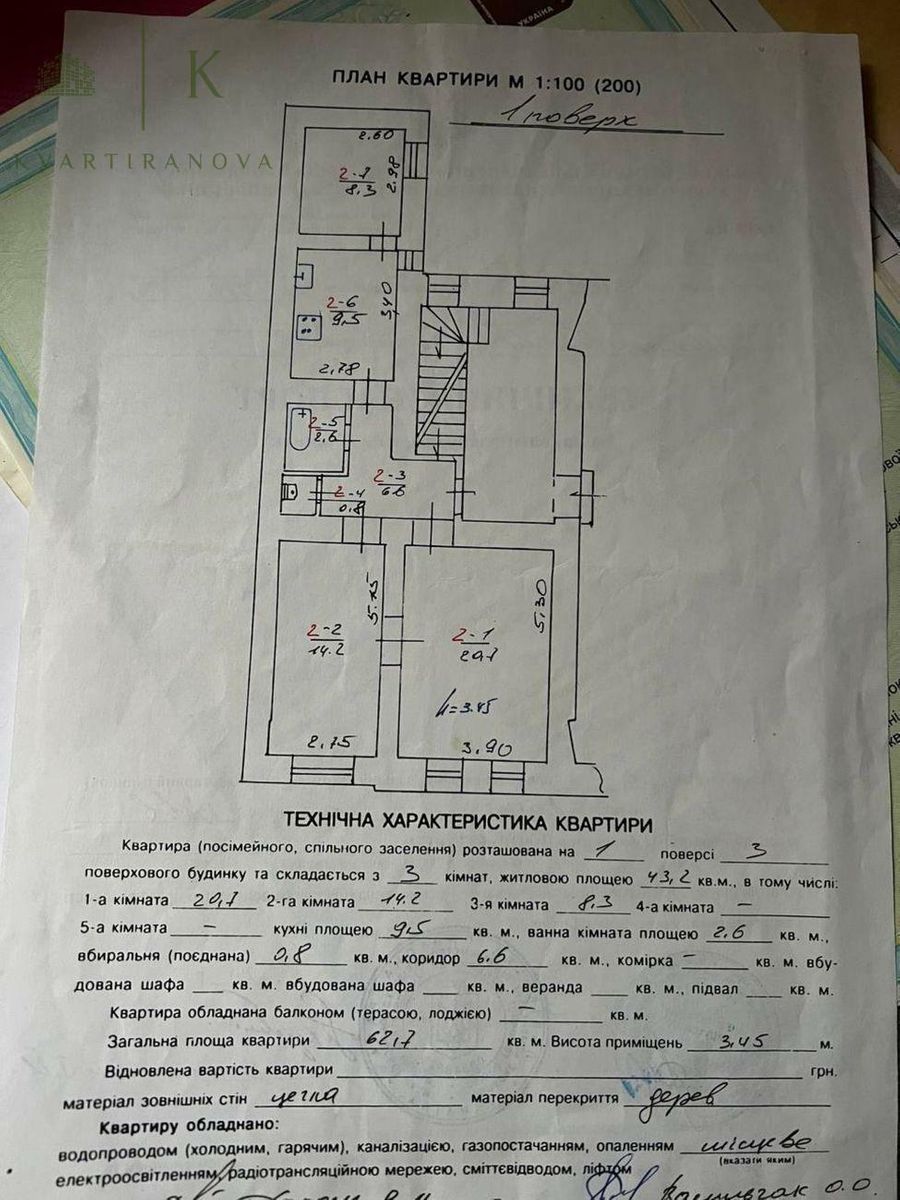 УКРАЇНА
K
KVARTIRANOVA
ПЛАН КВАРТИРИ М 1:100 (200)
1 поверх
2.60
2-7
8.3
2.98
2-6
9.5
3,40
2,78
2-5
2.6
2-3
6.6
2-4
0,8
2-2
14.2
5.15
2-1
20.7
5,30
h=3.45
2,75
3,90
ТЕХНІЧНА ХАРАКТЕРИСТИКА КВАРТИРИ
Квартира (посімейного, спільного заселення) розташована на 1 поверсі 3
поверхового будинку та складається з 3 кімнат, житловою площею 43,2 кв.м., в тому числі:
1-а кімната 20,7 2-га кімната 14.2 3-я кімната 8.3 4-а кімната –
5-а кімната – кухні площею 9,5 кв. м., ванна кімната площею 2.6 кв. м.,
вбиральня (поєднана) 0,8 кв. м., коридор 6.6 кв. м., комірка – кв. м. вбу-
дована шафа ___ кв. м. вбудована шафа ___ кв. м., веранда ___ кв. м., підвал ___ кв. м.
Квартира обладнана балконом (терасою, лоджією) – кв. м.
Загальна площа квартири 62,7 кв. м. Висота приміщень 3,45 м.
Відновлена вартість квартири ___ грн.
матеріал зовнішніх стін цегла матеріал перекриття дерев
Квартиру обладнано:
водопроводом (холодним, гарячим), каналізацією, газопостачанням, опаленням місцеве
(вказати яким)
електроосвітленням, радіотрансляційною мережею, сміттєвідводом, ліфтом
О.О.